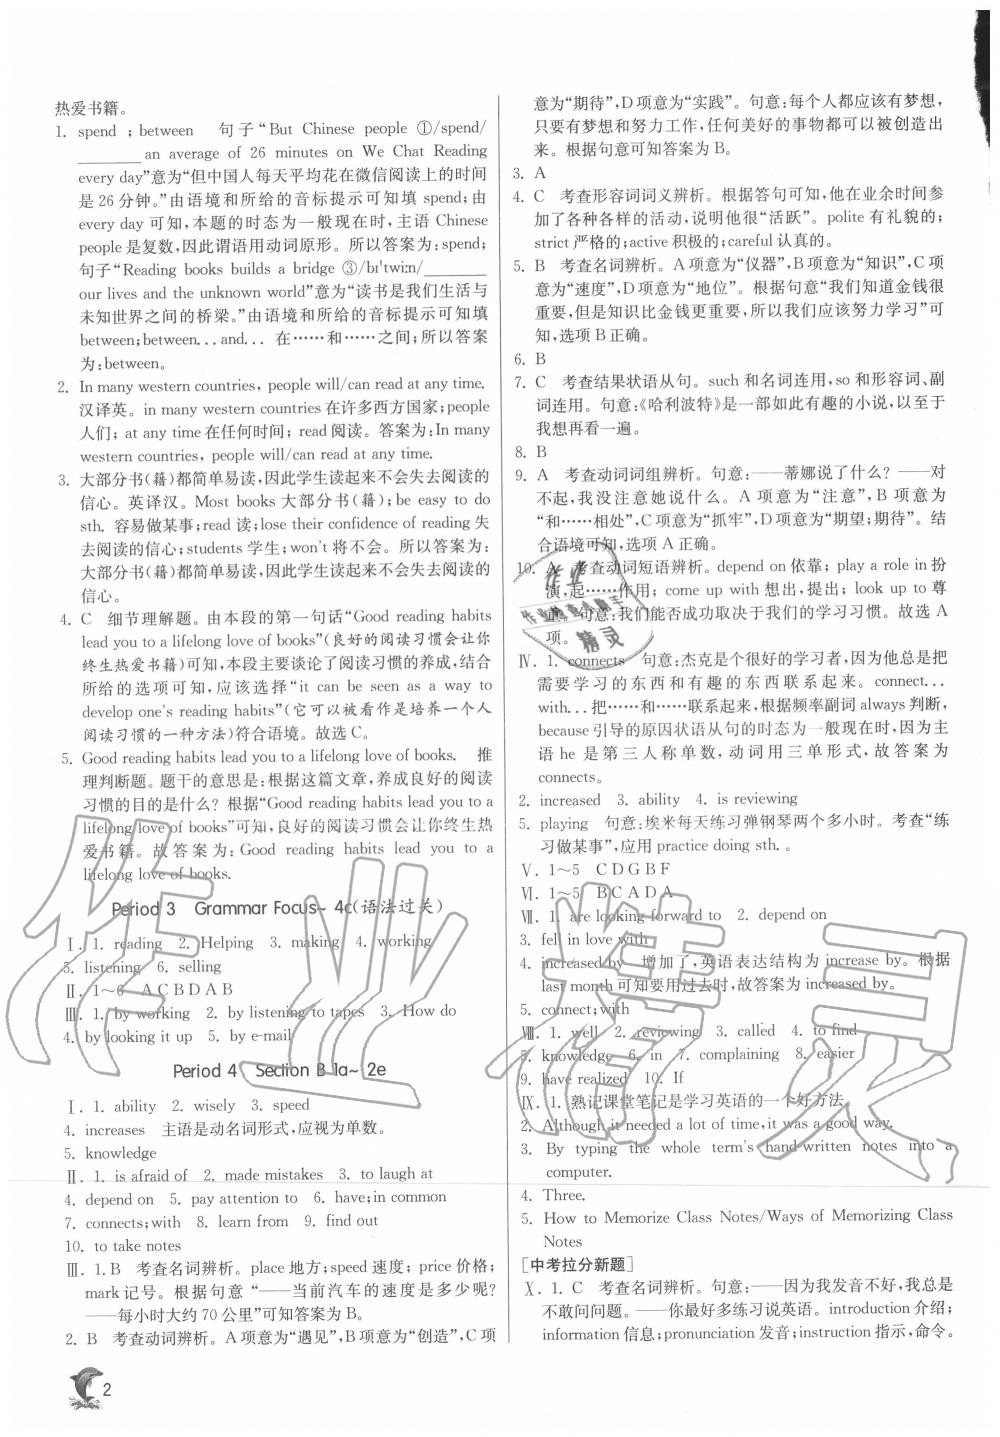 热爱书籍。
1. spend ; between　句子“But Chinese people ①/spend/
________ an average of 26 minutes on We Chat Reading
every day”意为“但中国人每天平均花在微信阅读上的时间
是26分钟。”由语境和所给的音标提示可知填 spend;由
every day 可知,本题的时态为一般现在时,主语 Chinese
people 是复数,因此谓语用动词原形。所以答案为:spend;
句子“Reading books builds a bridge ③/bɪ'twiːn/________
our lives and the unknown world”意为“读书是我们生活与
未知世界之间的桥梁。”由语境和所给的音标提示可知填
between;between...and... 在……和……之间;所以答案
为:between。
2. In many western countries, people will/can read at any time.
汉译英。in many western countries 在许多西方国家;people
人们; at any time 在任何时间; read 阅读。答案为:In many
western countries, people will/can read at any time.
3. 大部分书(籍)都简单易读,因此学生读起来不会失去阅读的
信心。英译汉。Most books 大部分书(籍);be easy to do
sth. 容易做某事;read 读;lose their confidence of reading 失
去阅读的信心;students 学生;won't 将不会。所以答案为:
大部分书(籍)都简单易读,因此学生读起来不会失去阅读的
信心。
4. C　细节理解题。由本段的第一句话“Good reading habits
lead you to a lifelong love of books”(良好的阅读习惯会让你
终生热爱书籍)可知,本段主要谈论了阅读习惯的养成,结合
所给的选项可知,应该选择“it can be seen as a way to
develop one's reading habits”(它可以被看作是培养一个人
阅读习惯的一种方法)符合语境。故选C。
5. Good reading habits lead you to a lifelong love of books.　推
理判断题。题干的意思是:根据这篇文章,养成良好的阅读
习惯的目的是什么? 根据“Good reading habits lead you to a
lifelong love of books”可知,良好的阅读习惯会让你终生热
爱书籍。故答案为:Good reading habits lead you to a
lifelong love of books.
Period 3　Grammar Focus~ 4c(语法过关)
Ⅰ. 1. reading　2. Helping　3. making　4. working
5. listening　6. selling
Ⅱ. 1～6　A C B D A B
Ⅲ. 1. by working　2. by listening to tapes　3. How do
4. by looking it up　5. by e-mail
Period 4　Section B 1a~ 2e
Ⅰ. 1. ability　2. wisely　3. speed
4. increases　主语是动名词形式,应视为单数。
5. knowledge
Ⅱ. 1. is afraid of　2. made mistakes　3. to laugh at
4. depend on　5. pay attention to　6. have;in common
7. connects;with　8. learn from　9. find out
10. to take notes
Ⅲ. 1. B　考查名词辨析。place 地方;speed 速度; price 价格;
mark 记号。根据句意“——当前汽车的速度是多少呢?
——每小时大约 70 公里”可知答案为 B。
2. B　考查动词辨析。A项意为“遇见”,B项意为“创造”,C项
意为“期待”,D项意为“实践”。句意:每个人都应该有梦想,
只要有梦想和努力工作,任何美好的事物都可以被创造出
来。根据句意可知答案为 B。
3. A
4. C　考查形容词词义辨析。根据答句可知,他在业余时间参
加了各种各样的活动,说明他很“活跃”。polite 有礼貌的;
strict 严格的;active 积极的;careful 认真的。
5. B　考查名词辨析。A 项意为“仪器”,B 项意为“知识”,C项
意为“速度”,D 项意为“地位”。根据句意“我们知道金钱很
重要,但是知识比金钱更重要,所以我们应该努力学习”可
知,选项 B 正确。
6. B
7. C　考查结果状语从句。such 和名词连用,so 和形容词、副
词连用。句意:《哈利波特》是一部如此有趣的小说,以至于
我想再看一遍。
8. B
9. A　考查动词词组辨析。句意:——蒂娜说了什么? ——对
不起,我没注意她说什么。A 项意为“注意”,B 项意为
“和……相处”,C项意为“抓牢”,D项意为“期望;期待”。结
合语境可知,选项 A 正确。
10. A　考查动词短语辨析。depend on 依靠; play a role in 扮
演,起……作用; come up with 想出,提出; look up to 尊
重。句意:我们能否成功取决于我们的学习习惯。故选 A
项。
Ⅳ. 1. connects　句意:杰克是个很好的学习者,因为他总是把
需要学习的东西和有趣的东西联系起来。connect...
with...把……和……联系起来,根据频率副词 always 判断,
because 引导的原因状语从句的时态为一般现在时,因为主
语 he 是第三人称单数,动词用三单形式,故答案为
connects。
2. increased　3. ability　4. is reviewing
5. playing　句意:埃米每天练习弹钢琴两个多小时。考查“练
习做某事”,应用 practice doing sth. 。
Ⅴ. 1～5　C D G B F
Ⅵ. 1～5　B C A D A
Ⅶ. 1. are looking forward to　2. depend on
3. fell in love with
4. increased by　增加了,英语表达结构为 increase by。根据
last month 可知要用过去时,故答案为 increased by。
5. connect;with
Ⅷ. 1. well　2. reviewing　3. called　4. to find
5. knowledge　6. in　7. complaining　8. easier
9. have realized　10. If
Ⅸ. 1. 熟记课堂笔记是学习英语的一个好方法。
2. Although it needed a lot of time,it was a good way.
3. By typing the whole term's hand-written notes into a
computer.
4. Three.
5. How to Memorize Class Notes/Ways of Memorizing Class
Notes
[中考拉分新题]
Ⅹ. 1. C　考查名词辨析。句意:——因为我发音不好,我总是
不敢问问题。——你最好多练习说英语。introduction 介绍;
information 信息;pronunciation 发音;instruction 指示,命令。
2
作业精灵
作业
作业检查小助手
精灵